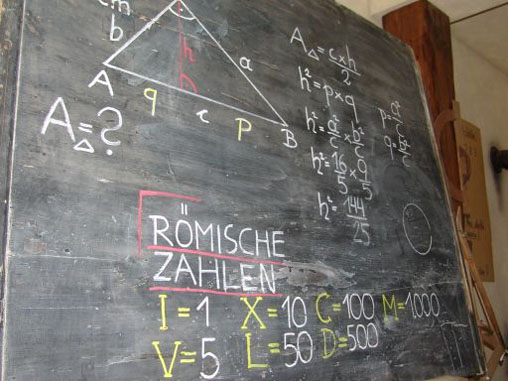 b
h
a
A
q
c
p
B
A△=?
A△=c×h/2
h²=p×q
h²=a²/c×b²/c
h²=16/5×9/5
h²=144/25
p=a²/c
q=b²/c
RÖMISCHE
ZAHLEN
I=1 X=10 C=100 M=1000
V=5 L=50 D=500